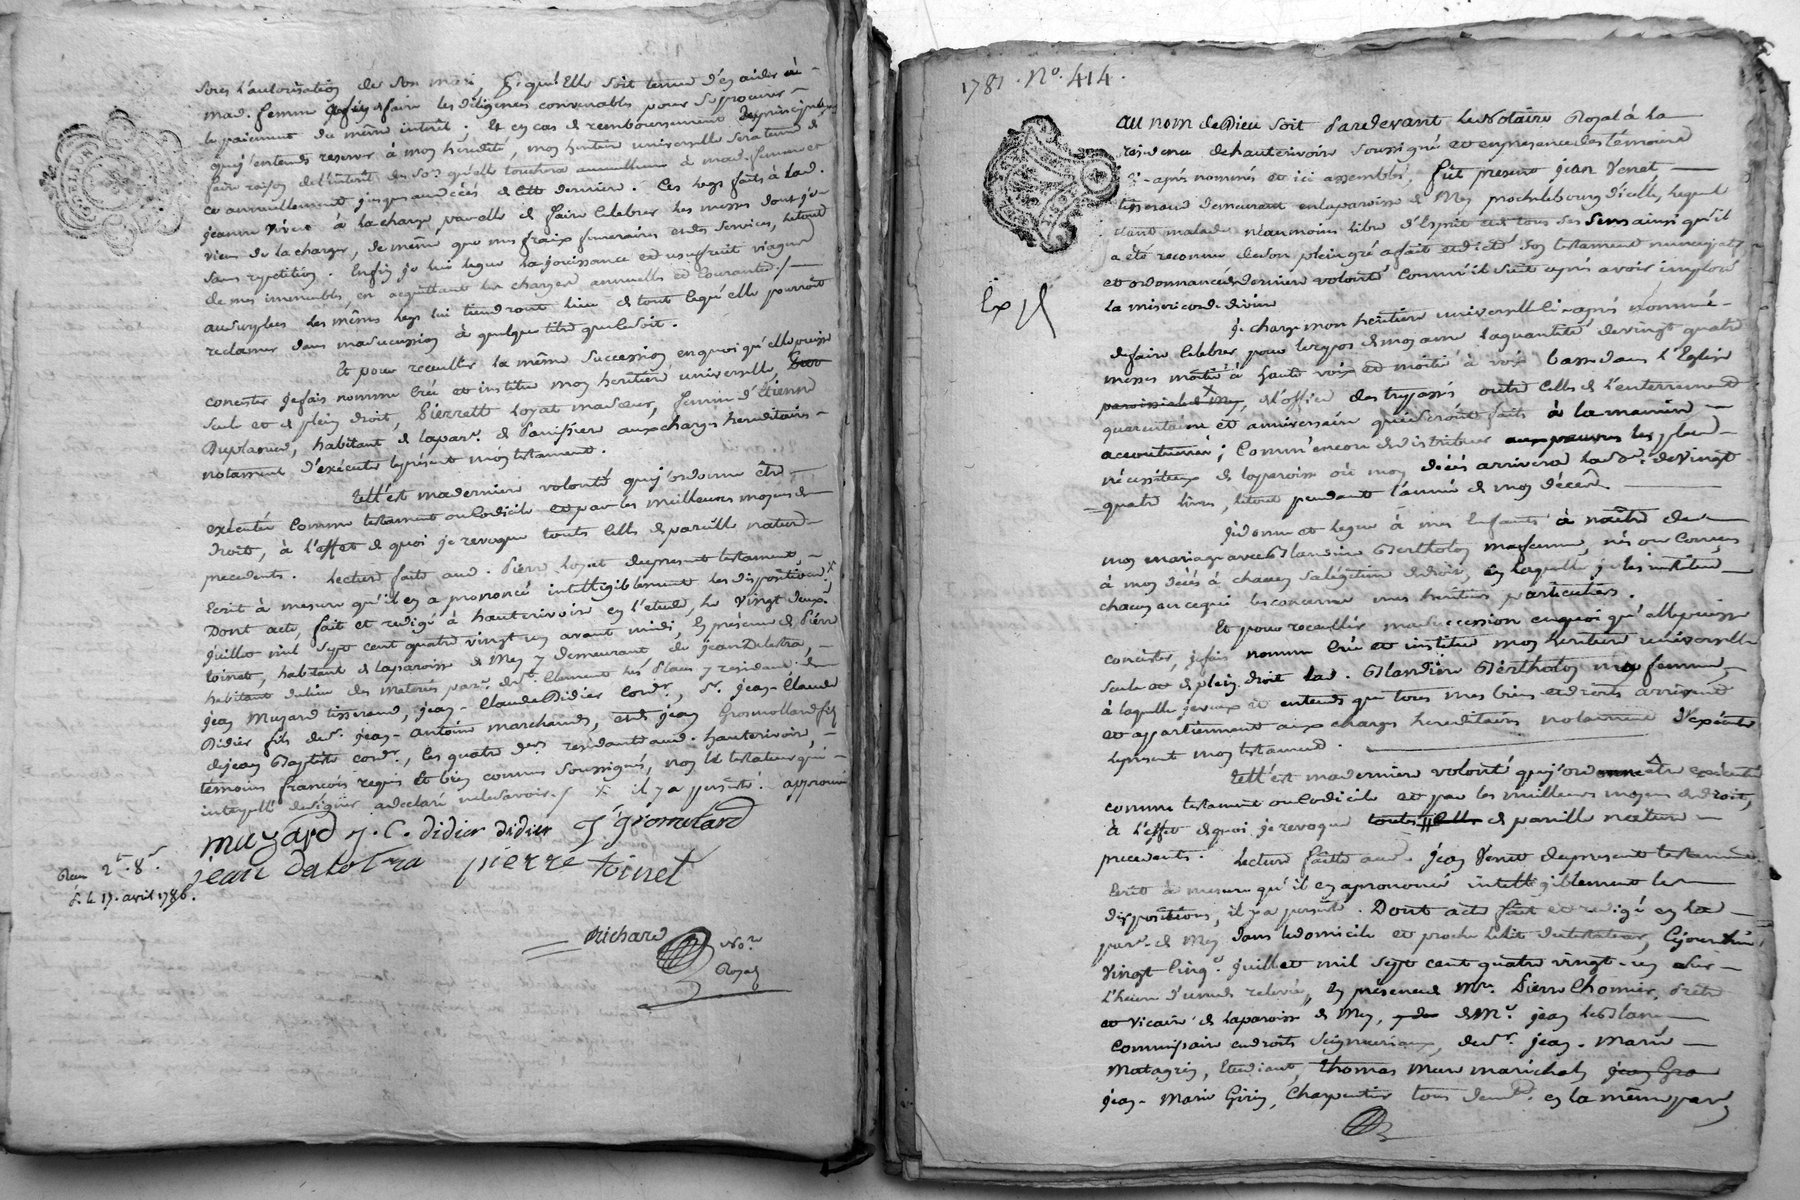 sous l'autorisation de son mari, & qu'elle soit tenue d'en aider à
mad. femme & faire les diligences convenables pour se procurer
le paiement du même intérêt; Et en cas de remboursement du principal
que j'entends reserver à mon heredité, mon heritiere universelle sera tenue de
faire raison de l'intérêt des so.s qu'elle touchera annuellement à mad. femme et
ce annuellement jusques au décés de cette derniere. Ces legs faits à lad.
jeanne à la charge par elle de faire celebrer les messes dont je
viens de la charger, de même que mes fraix funeraires et des services, le tout
sans repetition. Enfin je lui legue la jouissance et usufruit viager
de mes immeubles, en acquittant les charges annuelles et courantes./.
au surplus les mêmes legs lui tiendront lieu de tout ce qu'elle pourroit
reclamer dans ma succession à quelque titre que ce soit.
Et pour recueillir la même succession en quoi qu'elle puisse
consister je fais nomme crée et institue mon heritiere universelle,
seule et de plein droit, Pierrette Loyat ma sœur, femme d'Etienne
habitant de la par.e de Panissiere aux charges hereditaires
notament d'executer le présent mon testament.
Tell'est ma derniere volonté que j'ordonne être
exécutée comme testament ou codicile et par les meilleures moyens de
droit, à l'effet de quoi je revoque touts celles de pareille nature
precedents. Lecture faite aud. Pierre Loyat du present testament,
Ecrit à mesure qu'il en a prononcé intelligiblement les dispositions, x
Dont acte, fait et redigé à hauterivoire en l'etude, le vingt deux
juillet mil sept cent quatre vingt un avant midi, En présence de Pierre
Toinet, habitant de la paroisse de Mey y demeurant de jean Delatra,
habitant du lieu des Materés par.e de S.t Clement les Places y residant de
jean Muzard tisserand, jean-Claude Didier cord.r, S.r jean-Claude
Didier fils du S.r jean-Antoine marchands, et de jean Grosmollard fils
de jean Baptiste cord.r, les quatre d.ers residants aud. hauterivoire,
témoins francois requis et bien connus soussignés, non le testateur qui
interpellé de signer a declaré ne le savoir./. x il y a persisté: approuvé
muzard J. C. didier didier J gromolard
jean Delotra pierre toinet
Reçu 2.t 8.s
f. le 17. avril 1786.
Richard No.re
Royal
1781. No. 414.
Au nom de Dieu soit Pardevant le Notaire Royal à la
residence de hauterivoire soussigné et en presence des témoins
ci-après nommés et ici assemblés, fut present jean Venet
tisserand demeurant en la paroisse de Mey proche le bourg d'icelle, lequel
étant malade néanmoins libre d'Esprit et de tous ses sens ainsi qu'il
a été reconnu de son plein gré a fait et dicté son testament nuncupatif
et ordonnance de derniere volonté Comm'il suit après avoir imploré
la misericorde divine
Je charge mon heritiere universelle ci-après nommée
de faire celebrer pour le repos de mon ame la quantité de vingt quatre
messes moitié à haute voix et moitié à voix basse dans l'Eglise
paroissiale de Mey, et l'office des trepassés outre celles de l'enterrement
quarantaine et anniversaire qui seront faits à la maniere
accoutumée; Comm'encore de distribuer aux pauvres les plus
nécessiteux de la paroisse où mon décés arrivera la so.e de vingt
quatre livres, le tout pendant l'année de mon décés.
Je donne et legue à mes Enfants à naître de
mon mariage avec Blandine Bertholon ma femme, nés ou Conçus
à mon décés à chacun sa légitime de droit, en laquelle je les institue
chacun en ce qui les concerne mes heritiers particuliers.
Et pour recueillir ma succession en quoi qu'elle puisse
consister, je fais nomme crée et institue mon heritiere universelle
seule et de plein droit lad. Blandine Bertholon ma femme,
à laquelle je veux et entends que tous mes biens et droits arrivent
et appartiennent aux charges hereditaires notament d'exécuter
le présent mon testament.
Tell'est ma derniere volonté que j'ordonne être exécutée
comme testament ou codicile et par les meilleurs moyens de droit,
à l'effet de quoi je revoque touts celles de pareille nature
precedents. Lecture faitte aud. jean Venet du present testament
Ecrit à mesure qu'il en a prononcé intelligiblement les
dispositions, il y a persisté. Dont acte fait et redigé en lad.
par.e de Mey dans le domicile et proche le lit du testateur, ce jourd'hui
vingt cinq.e juillet mil sept cent quatre vingt-un sur
l'heure d'une de relevée, En présence de M.re Pierre Chomier, Prêtre
et vicaire de la paroisse de Mey, de M.e jean
Commissaire en droits Seigneuriaux, de S.r jean-Marie
Matagrin, Etudiant, Thomas maréchal, jean Gra
jean-Marie Girin, Charpentier tous dem.t en la même par.e